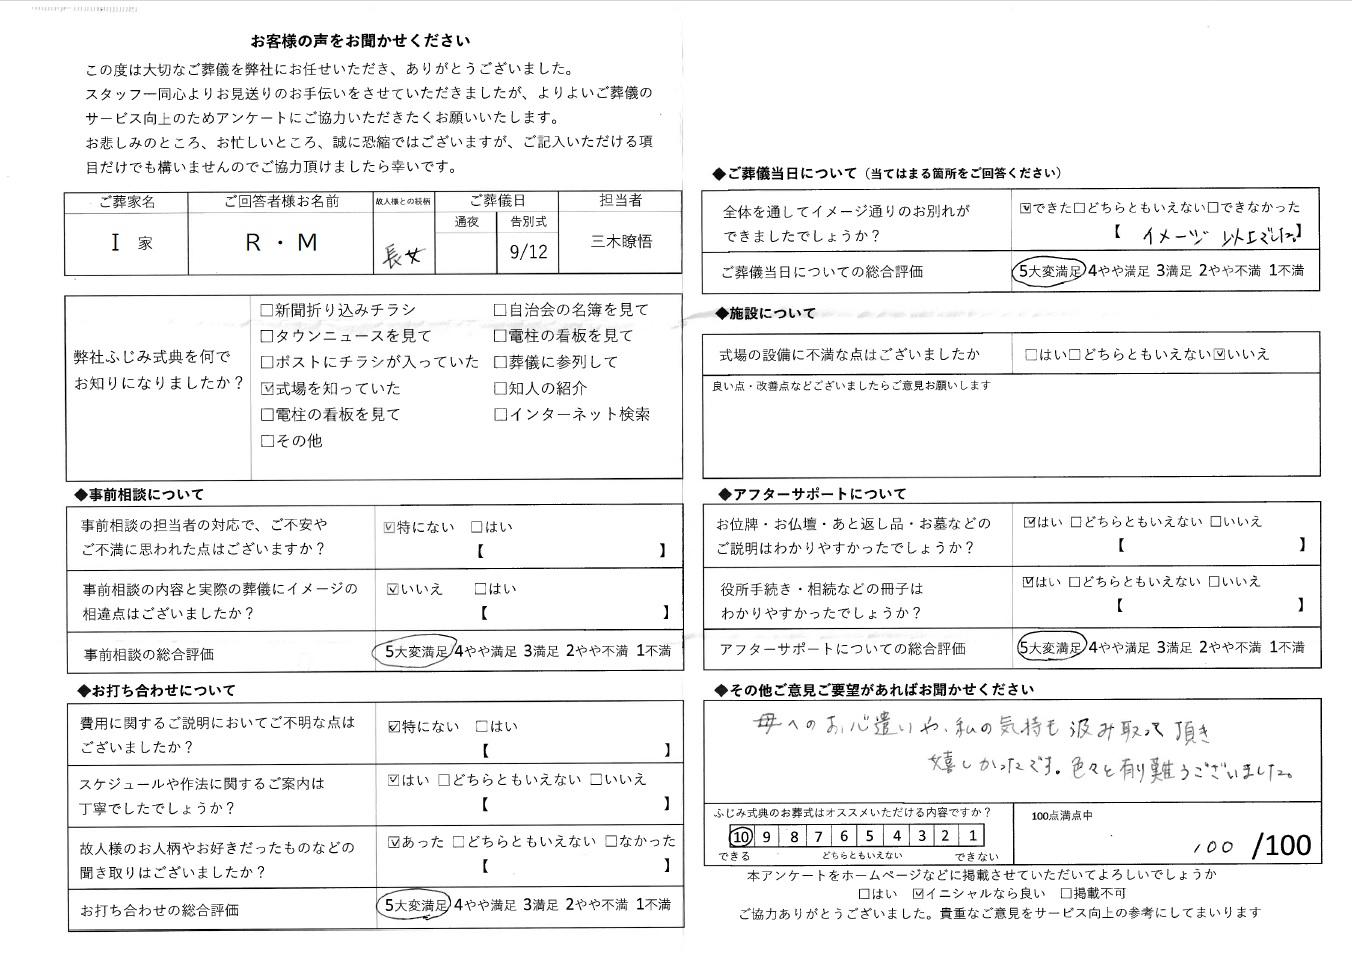 お客様の声をお聞かせください
この度は大切なご葬儀を弊社にお任せいただき、ありがとうございました。
スタッフ一同心よりお見送りのお手伝いをさせていただきましたが、よりよいご葬儀の
サービス向上のためアンケートにご協力いただきたくお願いいたします。
お悲しみのところ、お忙しいところ、誠に恐縮ではございますが、ご記入いただける項
目だけでも構いませんのでご協力頂けましたら幸いです。
ご葬家名 ご回答者様お名前 故人様との続柄 ご葬儀日 担当者
通夜 告別式
I 家 R・M 長女 9/12 三木暸悟
弊社ふじみ式典を何で
お知りになりましたか？
□新聞折り込みチラシ □自治会の名簿を見て
□タウンニュースを見て □電柱の看板を見て
□ポストにチラシが入っていた □葬儀に参列して
☑式場を知っていた □知人の紹介
□電柱の看板を見て □インターネット検索
□その他
◆事前相談について
事前相談の担当者の対応で、ご不安や
ご不満に思われた点はございますか？
☑特にない □はい
【 】
事前相談の内容と実際の葬儀にイメージの
相違点はございましたか？
☑いいえ □はい
【 】
事前相談の総合評価 5大変満足 4やや満足 3満足 2やや不満 1不満
◆お打ち合わせについて
費用に関するご説明においてご不明な点は
ございましたか？
☑特にない □はい
【 】
スケジュールや作法に関するご案内は
丁寧でしたでしょうか？
☑はい □どちらともいえない □いいえ
【 】
故人様のお人柄やお好きだったものなどの
聞き取りはございましたか？
☑あった □どちらともいえない □なかった
【 】
お打ち合わせの総合評価 5大変満足 4やや満足 3満足 2やや不満 1不満
◆ご葬儀当日について（当てはまる箇所をご回答ください）
全体を通してイメージ通りのお別れが
できましたでしょうか？
☑できた□どちらともいえない□できなかった
【 イメージ 以上でした。】
ご葬儀当日についての総合評価 5大変満足 4やや満足 3満足 2やや不満 1不満
◆施設について
式場の設備に不満な点はございましたか □はい□どちらともいえない☑いいえ
良い点・改善点などございましたらご意見お願いします
◆アフターサポートについて
お位牌・お仏壇・あと返し品・お墓などの
ご説明はわかりやすかったでしょうか？
☑はい □どちらともいえない □いいえ
【 】
役所手続き・相続などの冊子は
わかりやすかったでしょうか？
☑はい □どちらともいえない □いいえ
【 】
アフターサポートについての総合評価 5大変満足 4やや満足 3満足 2やや不満 1不満
◆その他ご意見ご要望があればお聞かせください
母へのお心遣いや、私の気持も汲み取って頂き
嬉しかったです。色々と有り難うございました。
ふじみ式典のお葬式はオススメいただける内容ですか？
10 9 8 7 6 5 4 3 2 1
できる どちらともいえない できない
100点満点中
100 /100
本アンケートをホームページなどに掲載させていただいてよろしいでしょうか
□はい ☑イニシャルなら良い □掲載不可
ご協力ありがとうございました。貴重なご意見をサービス向上の参考にしてまいります